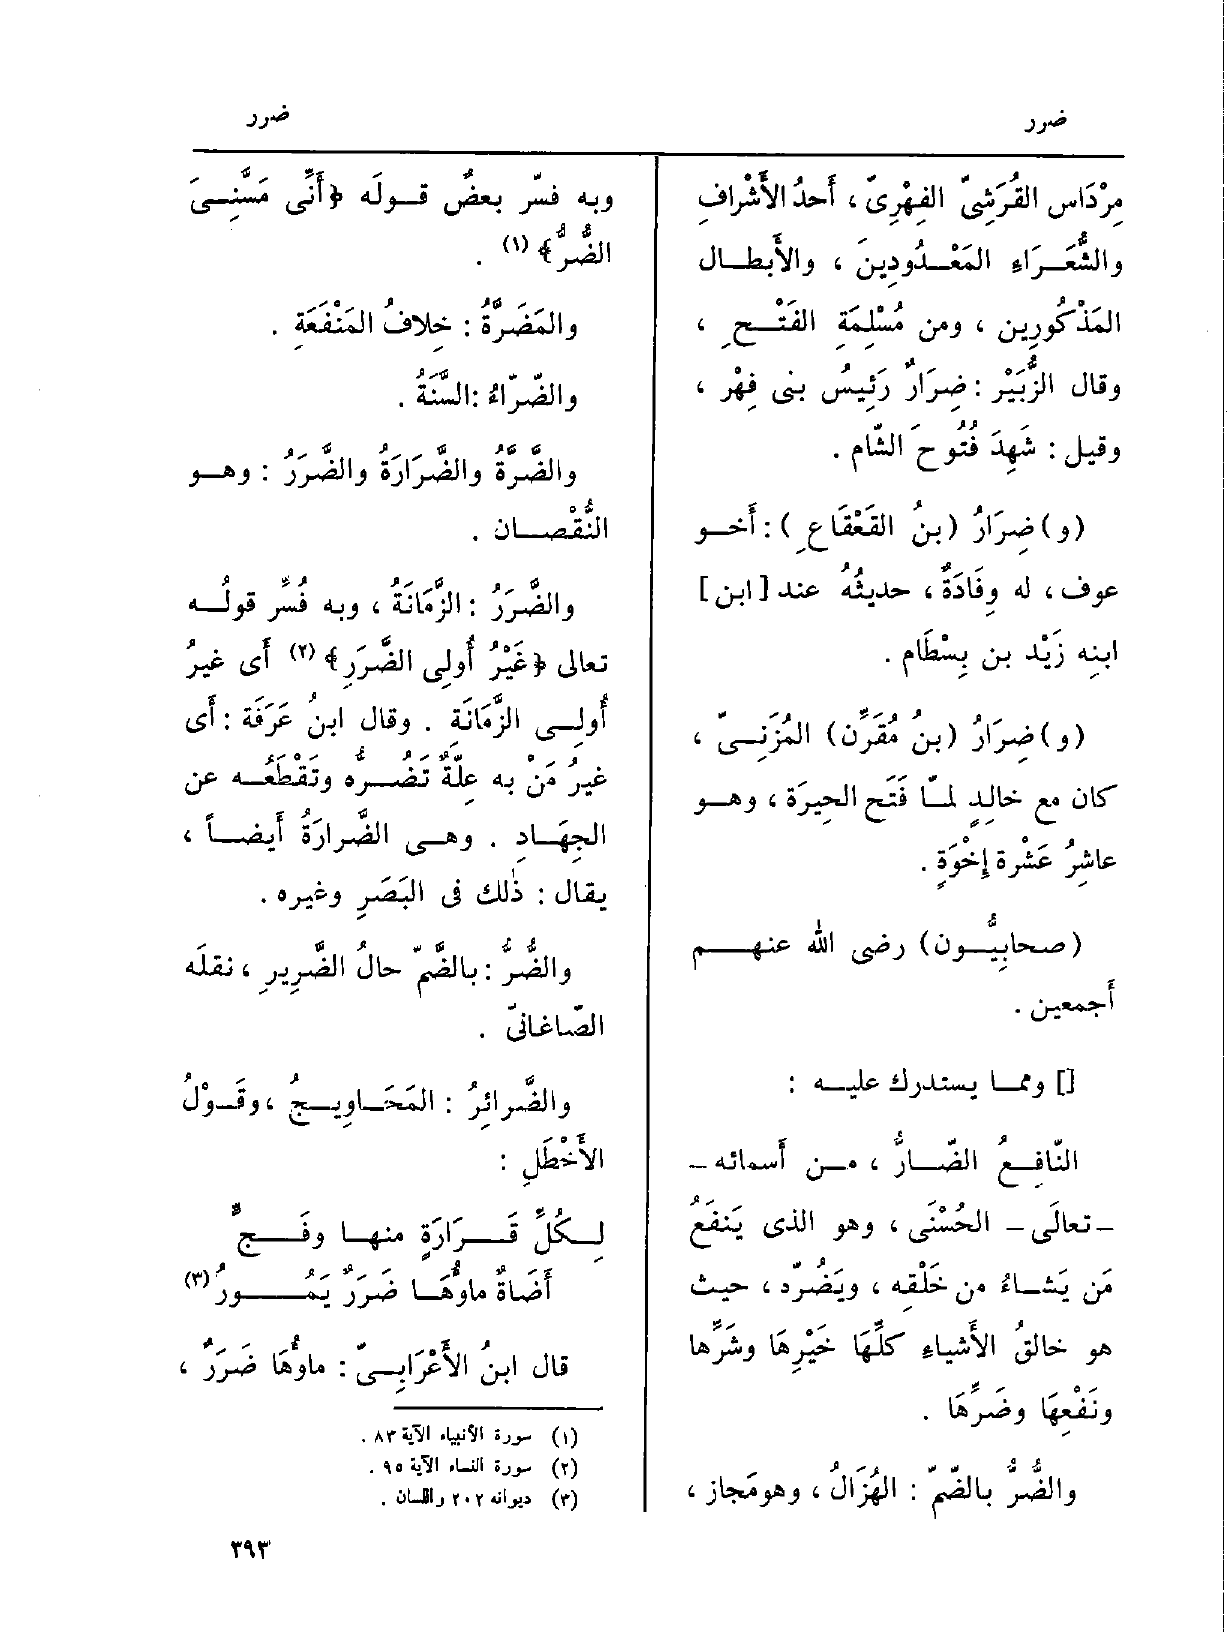 ضرر
ضرر
مِرْدَاس القُرَشِىّ الفِهْرِىّ ، أَحدُ الأَشْرافِ
والشُّعَـرَاءِ المَعْـدُودِينَ ، والأَبطـال
المَذْكُورِين ، ومن مُسْلِمَةِ الفَتْـحِ ،
وقال الزُّبَيْر : ضِرَارٌ رَئِيسُ بنى فِهْر ،
وقيل : شَهِدَ فُتُوحَ الشّام .
(و) ضِرَارُ (بنُ القَعْقَاعِ) : أَخـو
عوف ، له وِفَادَةٌ ، حديثُهُ عند [ابن]
ابنِه زَيْد بن بِسْطَام .
(و) ضِرَارُ (بنُ مُقَرِّن) المُزَنِـىّ ،
كان مع خالِدٍ لمّـا فَتَح الحِيرَة ، وهـو
عاشِرُ عَشْرة إِخْوَةٍ .
(صحابِيُّـون) رضى الله عنهـم
أَجمعين .
[] ومما يستدرك عليـه :
النّافِـعُ الضّـارُّ ، مـن أَسمائه ـ
ـ تعالَى ـ الحُسْنَى ، وهو الذى يَنفَعُ
مَن يَشـاءُ من خَلْقِه ، ويَضُرّه ، حيث
هو خالقُ الأَشياءِ كلِّهَا خَيْرِهَا وشَرِّها
ونَفْعِهَا وضَرِّهَا .
والضُّرُّ بالضّمّ : الهُزَالُ ، وهو مَجاز ،
وبه فسّر بعضٌ قـولَه ﴿أَنِّى مَسَّنِـىَ
الضُّرُّ﴾ (١) .
والمَضَرَّةُ : خِلافُ المَنْفَعَةِ .
والضّرّاءُ : السَّنَةُ .
والضَّرَّةُ والضَّرَارَةُ والضَّرَرُ : وهـو
النُّقْصـان .
والضَّرَرُ : الزَّمَانَةُ ، وبه فُسِّر قولُـه
تعالى ﴿غَيْرُ أُولِى الضَّرَرِ﴾ (٢) أَى غيرُ
أُولِـى الزَّمَانَةِ . وقال ابنُ عَرَفَة : أَى
غيرُ مَنْ به عِلَّةٌ تَضُـرُّه وتَقْطَعُـه عن
الجِهَـادِ . وهـى الضَّرارَةُ أَيضـاً ،
يقال : ذٰلك فى البَصَرِ وغيره .
والضُّرُّ : بالضّمّ حالُ الضَّرِيرِ ، نقلَه
الصّاغانىّ .
والضَّرائِرُ : المَحَـاوِيـجُ ، وقَـوْلُ
الأَخْطَلِ :
لِـكُلِّ قَـرَارَةٍ منهـا وفَـجٍّ
أَضَاةٌ ماؤُهَـا ضَرَرٌ يَمُـورُ (٣)
قال ابنُ الأَعْرَابِـىّ : ماؤُهَا ضَرَرٌ ،
(١) سورة الأنبياء الآية ٨٣ .
(٢) سورة النساء الآية ٩٥ .
(٣) ديوانه ٢٠٢ واللسان .
٣٩٣